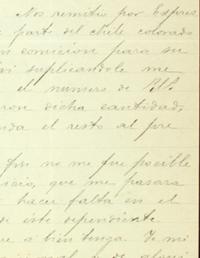 Nos remitió por Expres
parte del chile colorado
n comicion para su
suplicandole me
el numero de Bll.
ron dicha cantidad,
nda el resto al pre
que no me fue posible
icio, que me pasara
hacer falta en el
de este dependiente
ue a bien tenga. Te mi